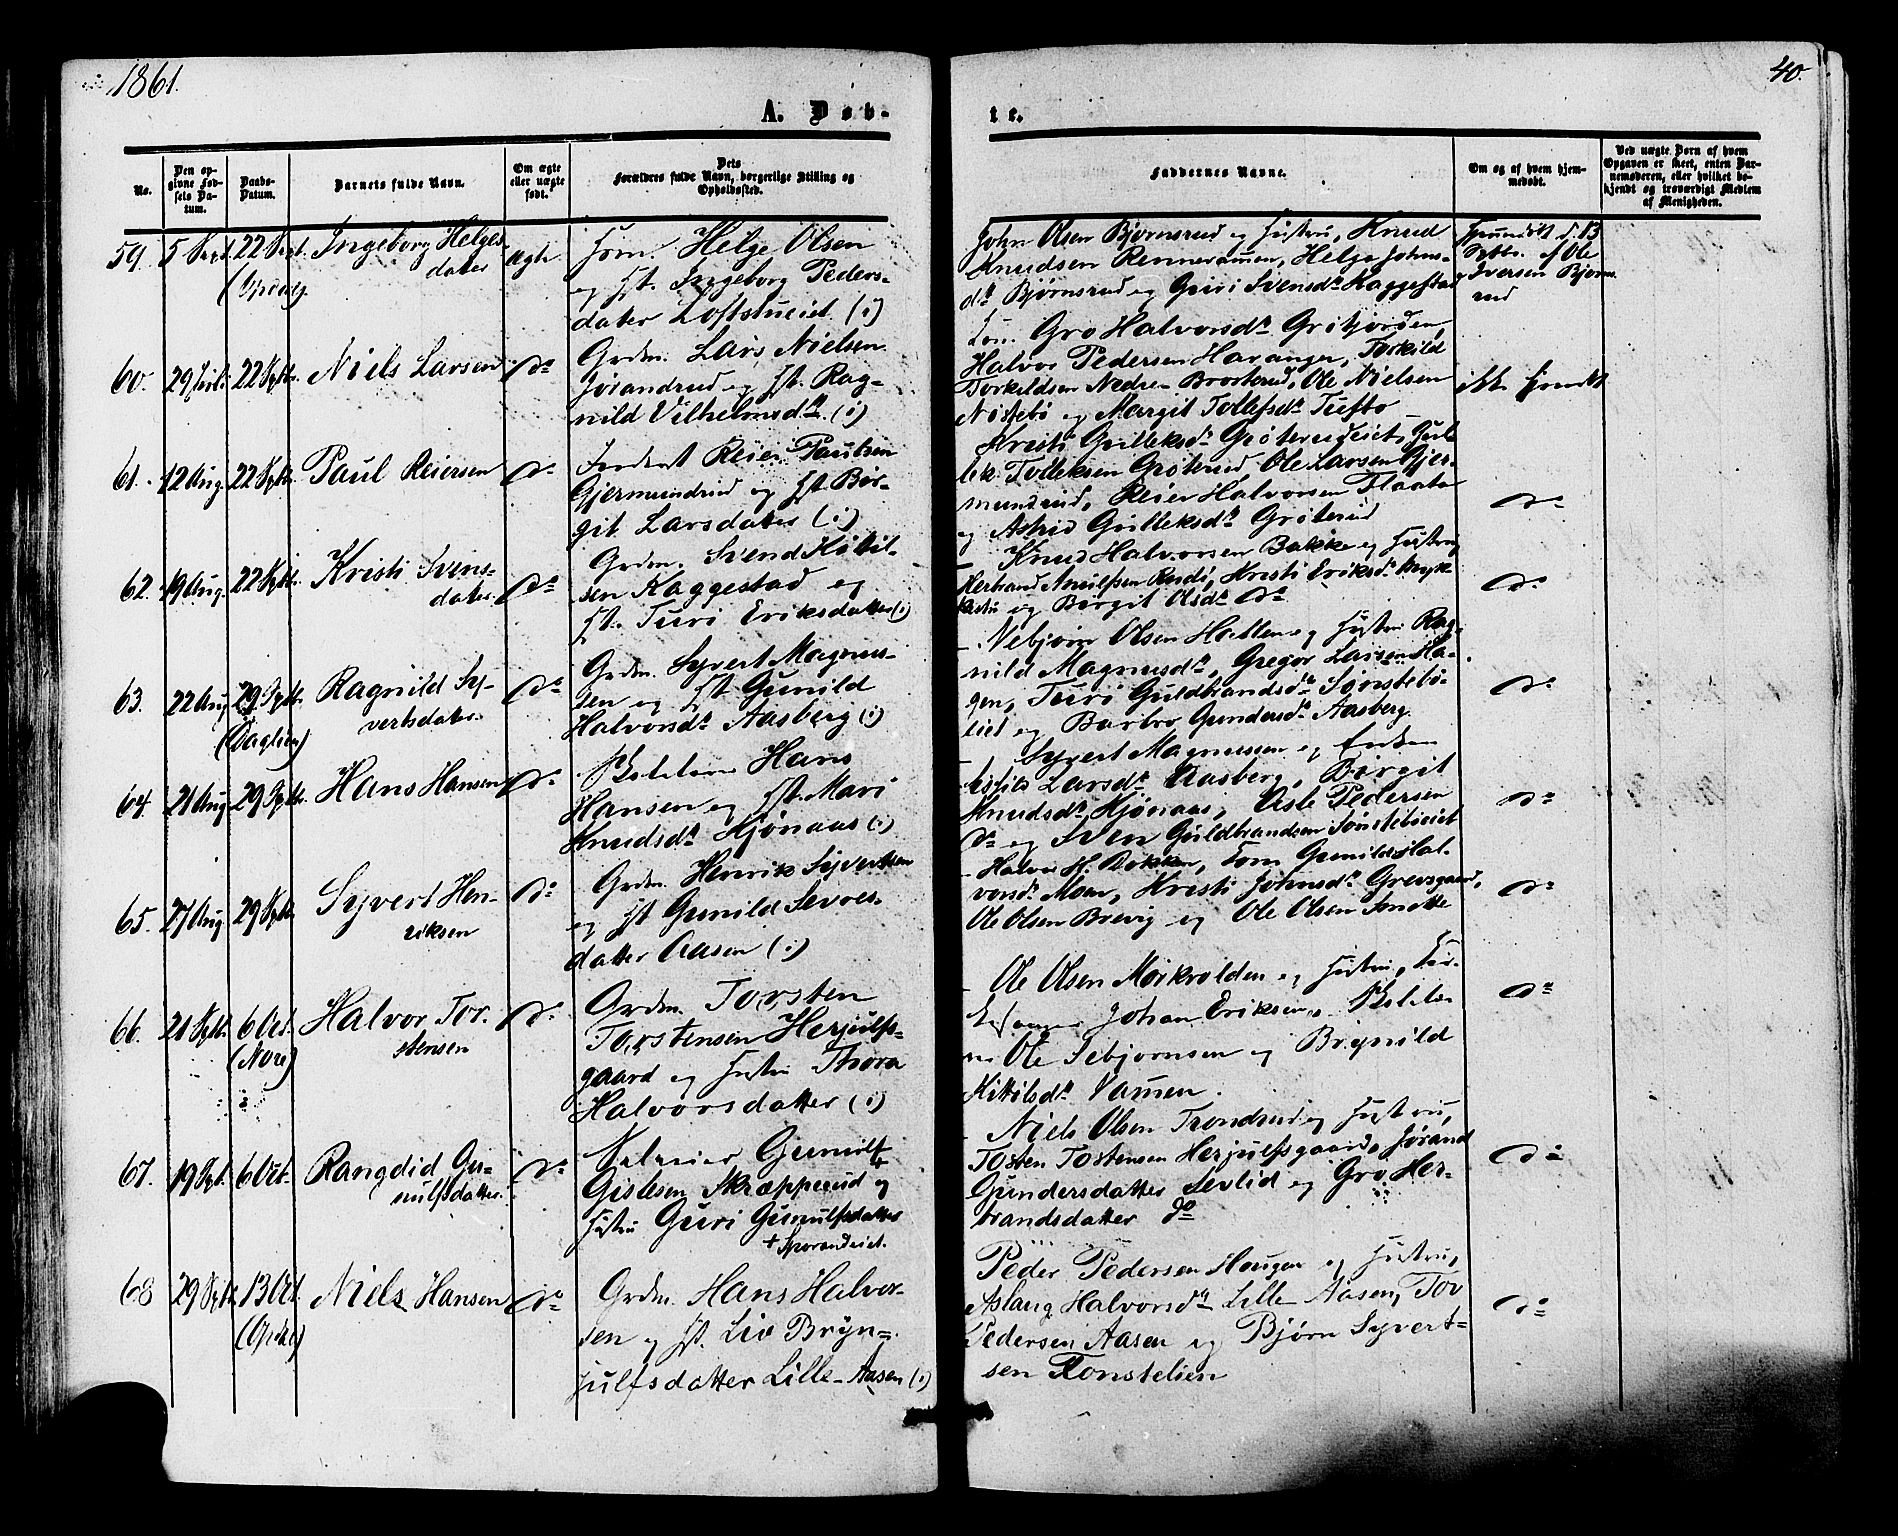 1861.
40.
A. Døb-
te.
No.
Den op-
givne Fød-
sels Da-
tum.
Daabs-
Datum.
Barnets fulde Navn.
Om ægte
eller uægte
født.
Dets
Forældres fulde Navn, borgerlige Stilling og
Opholdssted.
Faddernes Navne.
Om og af hvem hjem-
medøbt.
Ved uægte Børn af hvem
Opgaven er skeet, enten Bar-
nemoderen, eller hvilket be-
kjendt og troværdigt Medlem
af Menigheden.
59. 5 Sept. 22 Sept. Ingeborg Helges-
datter
ægte
Helge Olsen
og Hst. Ingeborg Peders-
datter Loftstueiet (i)
John Olsen Bjørnsrud og Hustru, Knud
Knudsen Helge Johns-
dr Bjørnsrud og Guri Svensdr Kaggestad
Hjemmedøbt d. 13
Septbr. af Ole
Iversen Bjørns-
rud
60. 29 22 Septr. Niels Larsen do
Grdm. Lars Nielsen
Jørandrud og Hst. Rag-
nild Vilhelmsdr (i)
Gro Halvorsdr Grøtjorden,
Halvor Pedersen Haranger, Torkild
Torkildsen Nedre-Brosterud, Ole Nielsen
Nøstebø og Margit Tollefsdr Tufto
ikke hjemdt
61. 12 Aug. 22 Septr. Paul Reiersen do
Reier Paulsen
Gjermundrud og Hst. Bir-
git Larsdatter (i)
Kristi Gulleksdr Grøterudeiet, Gul-
lik Tolleksen Grøterud Ole Larsen Gjer-
mundrud, Reier Halvorsen Flaata
og Astrid Gulleksdr Grøterud
do
62. 19 Aug. 22 Septr. Kristi Svens-
datter do
Grdm. Svend Kittil-
sen Kaggestad og
Hst. Turi Eriksdatter (i)
Knud Halvorsen Bakke og Hustru
Herbrand Kristi Eriksdr
og Birgit Olsdr do
do
63. 22 Aug 29 Septr. Ragnild Sy-
vertsdatter
(Dagslien)
do
Grdm. Syvert Magnus-
sen og Hst Gunild
Halvorsdr Aasberg (i)
Nebjørn Olsen Hallen og Hustru Rag-
nild Magnusdr, Gregor Larsen Ha-
gen, Turi Guldbrandsdr Sønstebø-
eiet og Barbro Gundersdr Aasberg.
do
64. 21 Aug 29 Septr. Hans Hansen do
Hans
Hansen og Hst. Mari
Knudsdr Hjønaas (i)
Syvert Magnussen og Enken
Larsdr Aasberg, Birgit
Knudsdr Hjønaas, Asle Pedersen
do og Sven Guldbrandsen Sønstebøeiet
do
65. 27 Aug 29 Septr. Syvert Hen-
riksen
do
Grdm. Henrik Syvertsen
og Hst Gunild Sevres-
datter Aasen (i)
Halvor H. Bakken, Gunild Hal-
vorsdr Moen, Kristi Johnsdr Grevsgaard,
Ole Olsen Brevig og Ole Olsen
do
66. 21 Septr. 6 Oct. Halvor Tor-
stensen
(Nore)
do
Grdm. Torsten
Torstensen Herjulfs-
gaard og Hustru Thora
Halvorsdatter (i)
Ole Olsen Mørkvolden og Hustru,
Johan Eriksen,
Ole Sebjørnsen og Brynild
Kittilsdr Vaanen.
do
67. 19 Sept. 6 Oct. Rangdid Gu-
nulfsdatter.
do
Gunulf
Gislesen Skrapperud og
Hustru Guri Gunulfsdatter
+ Sporandeiet.
Niels Olsen Trondrud og Hustru,
Tosten Tostensen Herjulfsgaard, Jørand
Gundersdatter Sevlid og Gro Her-
brandsdatter do
do
68 29 Septr 13 Oct. Niels Hansen do
(Opdal)
Grdm. Hans Halvor-
sen og Hst. Liv Bryn-
julfsdatter Lille-Aasen (i)
Peder Pedersen Haugen og Hustru,
Aslaug Halvorsdr Lille Aasen, Tov
Pedersen Aasen og Bjørn Syvert-
sen Tonstelien
do